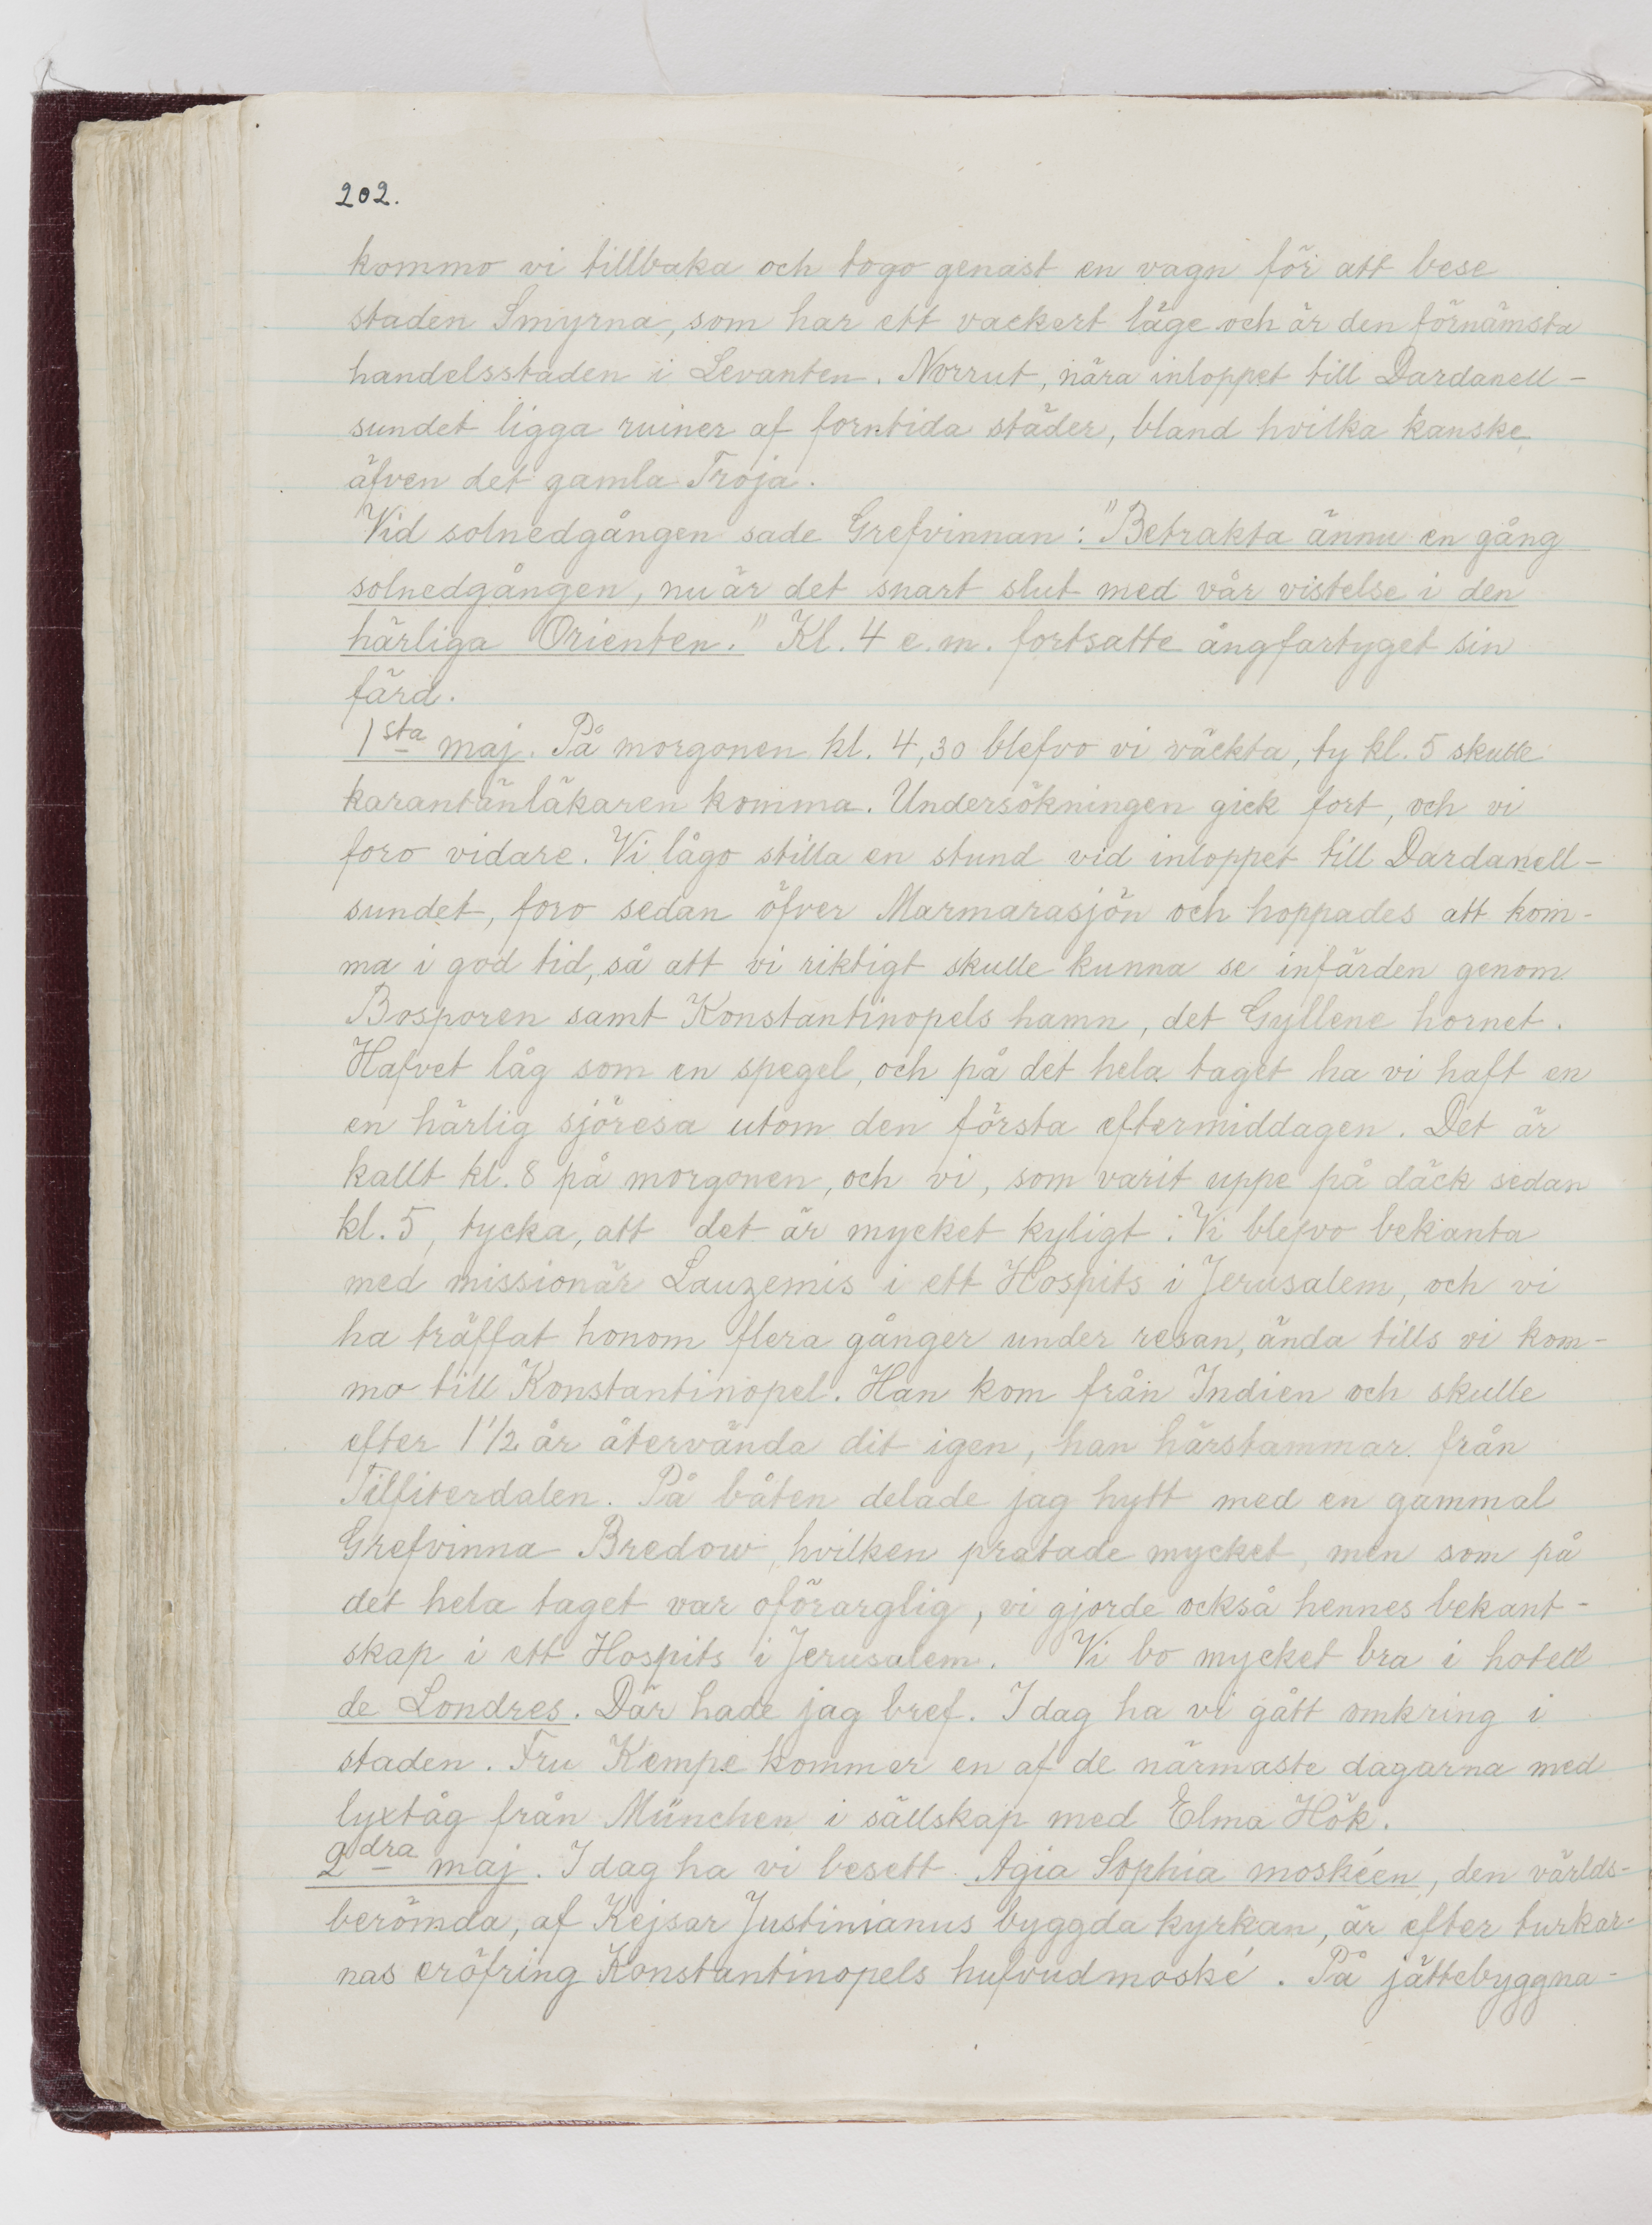 202.
kommo vi tillbaka och togo genast en vagn för att bese
staden Smyrna, som har ett vackert läge och är den förnämsta
handelsstaden i Levanten. Norrut, nära inloppet till Dardanell-
sundet ligga ruiner af forntida städer, bland hvilka kanske
äfven det gamla Troja.
Vid solnedgången sade Grefvinnan: "Betrakta ännu en gång
solnedgången, nu är det snart slut med vår vistelse i den
härliga Orienten." Kl. 4 e.m. fortsatte ångfartyget sin
färd.
1sta maj. På morgonen kl. 4,30 blefvo vi väckta, ty kl. 5 skulle
karantänläkaren komma. Undersökningen gick fort, och vi
foro vidare. Vi lågo stilla en stund vid inloppet till Dardanell-
sundet, foro sedan öfver Marmarasjön och hoppades att kom-
ma i god tid, så att vi riktigt skulle kunna se infärden genom
Bosporen samt Konstantinopels hamn, det Gyllene hornet.
Hafvet låg som en spegel, och på det hela taget ha vi haft en
en härlig sjöresa utom den första eftermiddagen. Det är
kallt kl. 8 på morgonen, och vi, som varit uppe på däck sedan
kl. 5, tycka, att det är mycket kyligt. Vi blefvo bekanta
med missionär Lauzemis i ett Hospits i Jerusalem, och vi
ha träffat honom flera gånger under resan, ända tills vi kom-
mo till Konstantinopel. Han kom från Indien och skulle
efter 1 1/2 år återvända dit igen, han härstammar från
Tilfiterdalen. På båten delade jag hytt med en gammal
Grefvinna Bredow, hvilken pratade mycket, men som på
det hela taget var oförarglig, vi gjorde också hennes bekant-
skap i ett Hospits i Jerusalem. Vi bo mycket bra i hotell
de Londres. Där hade jag bref. I dag ha vi gått omkring i
staden. Fru Kempe kommer en af de närmaste dagarna med
lyxtåg från München i sällskap med Elma Hök.
2dra maj. I dag ha vi besett Agia Sophia moskéen, den världs-
berömda, af Kejsar Justinianus byggda kyrkan, är efter turkar-
nas eröfring Konstantinopels hufvudmoské. På jättebyggna-